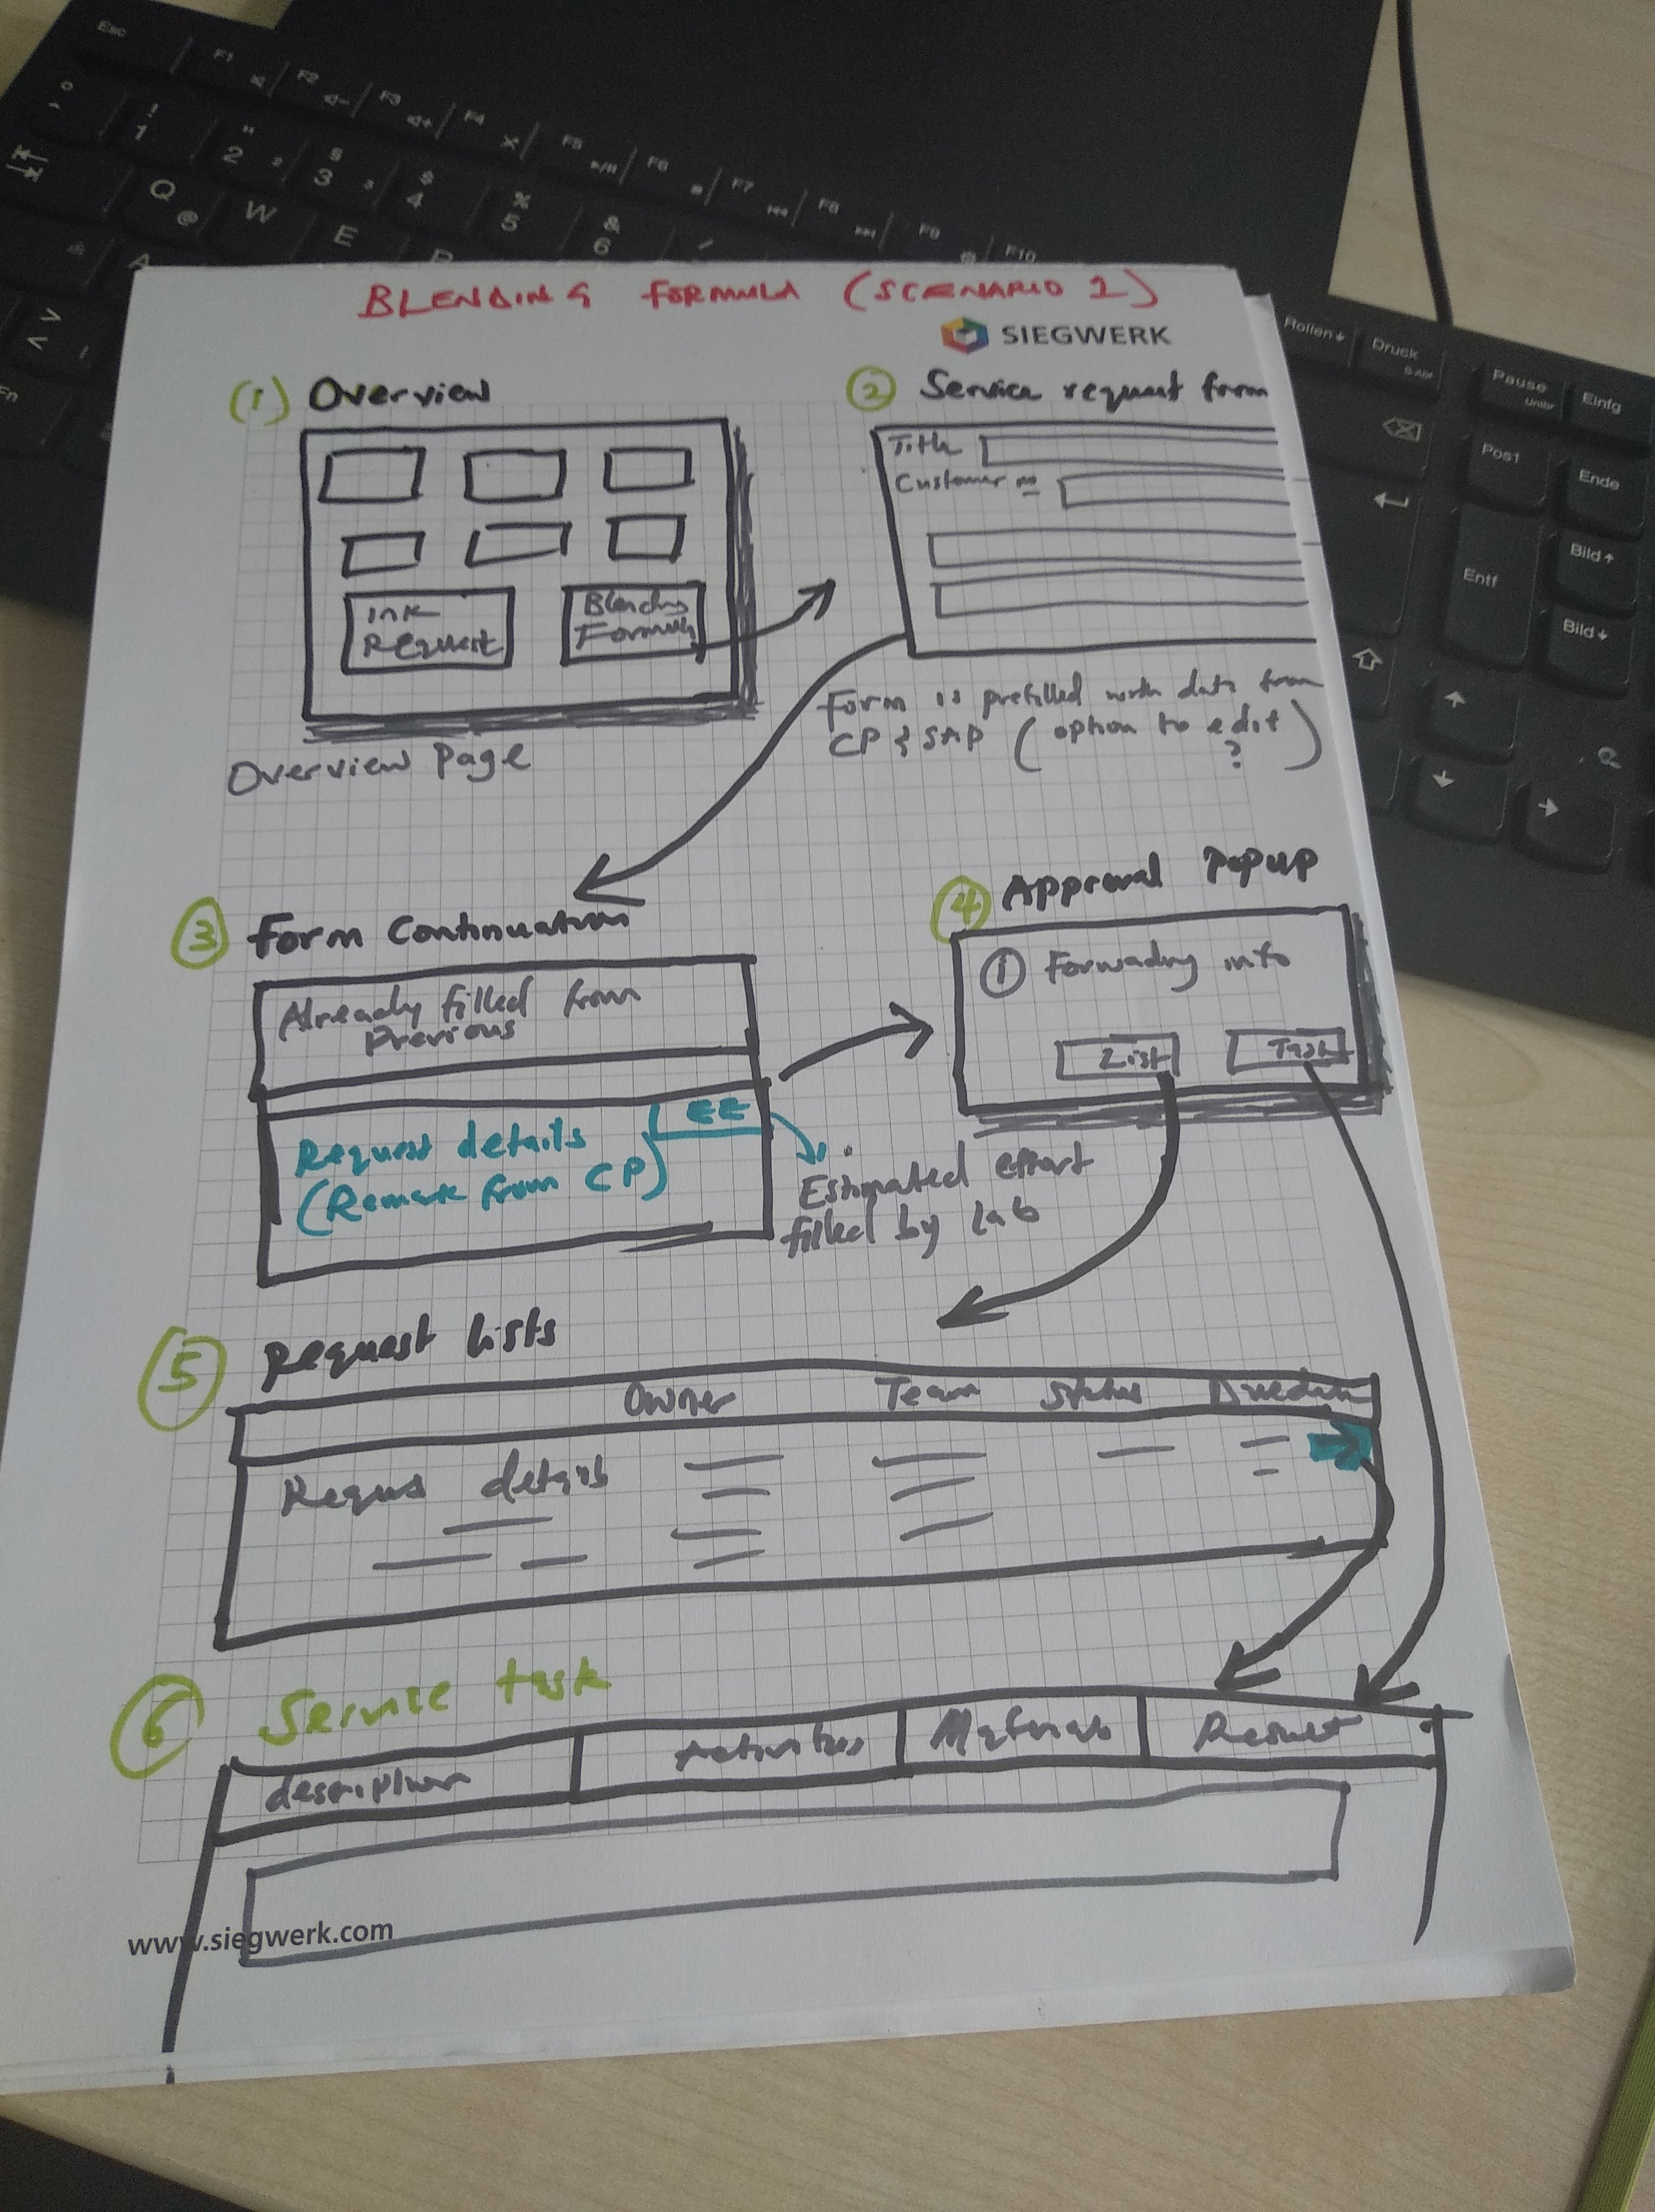 Esc
F1
F2
F3
F4
F5
F6
F7
F8
F9
F10
!
1
"
2 2
§
3 3
$
4
%
5
&
6
/
Q
@
W
E
A
Fn
Rollen
Druck
S-Abf
Pause
Untbr
Einfg
Pos1
Ende
Entf
Bild
Bild
BLENDING FORMULA (SCENARIO 1)
SIEGWERK
(1) Overview
Ink
Request
Blending
Formula
Overview Page
2 Service request form
Title
Customer no
Form is prefilled with data from
CP & SAP (option to edit
?)
3 Form Continuation
Already filled from
Previous
Request details
(Remark from CP)
EE
Estimated effort
filled by Lab
4 Approval Popup
i Forwading info
List
Task
5 Request Lists
Owner Team Status Duedate
Reques details
6 Service task
description
Activities
Materials
Result
www.siegwerk.com